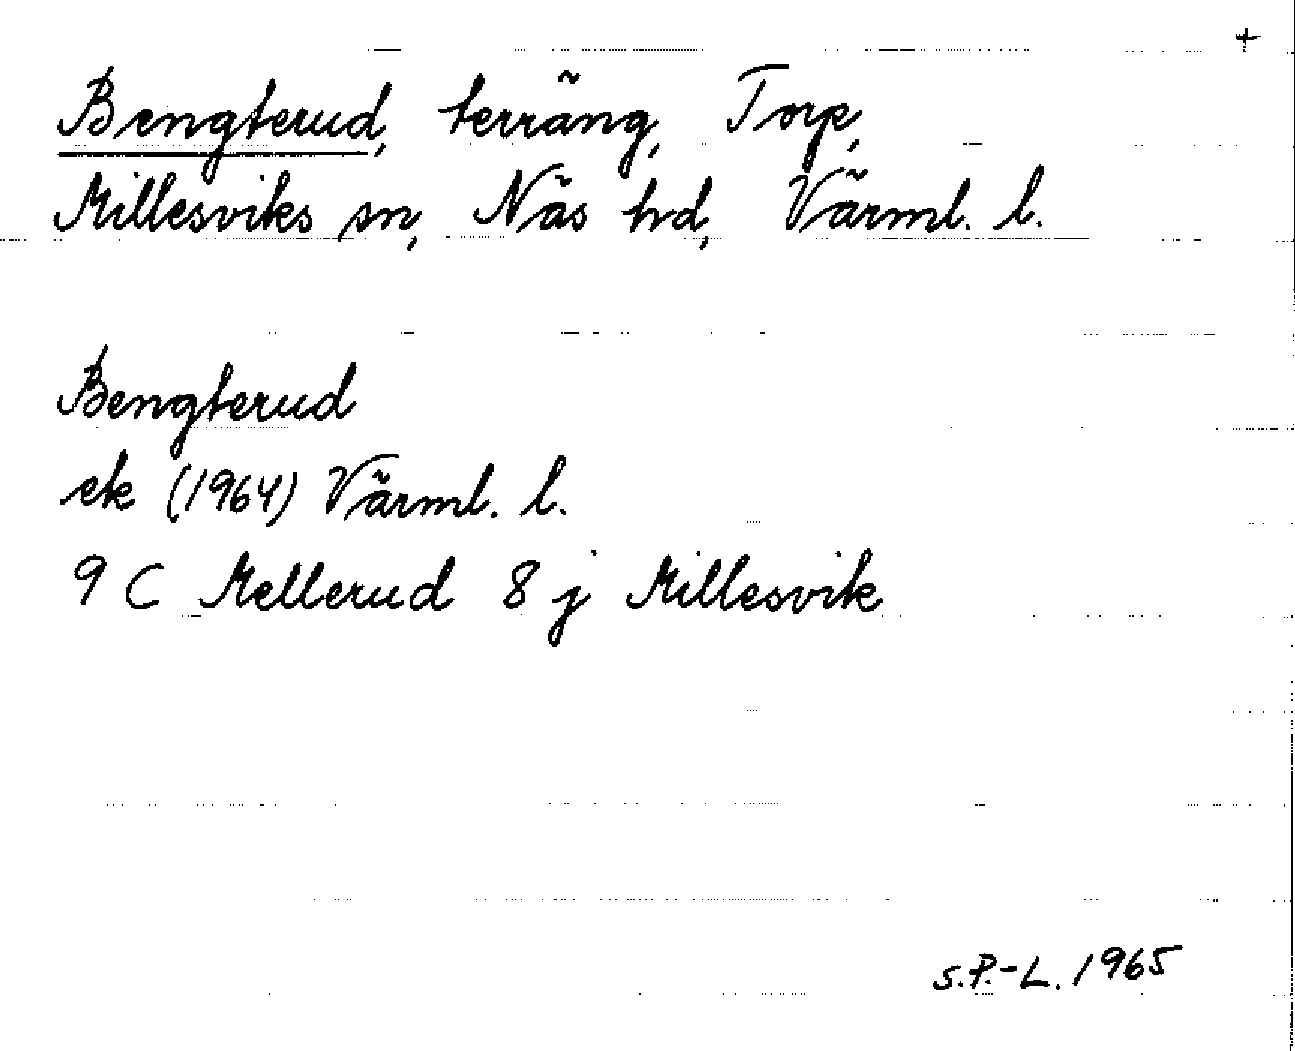 +
Bengterud, terräng, Torp,
Millesviks sn, Näs hd, Värml. l.
Bengterud
ek (1964) Värml. l.
9 C Mellerud 8 j Millesvik
S.P.-L. 1965